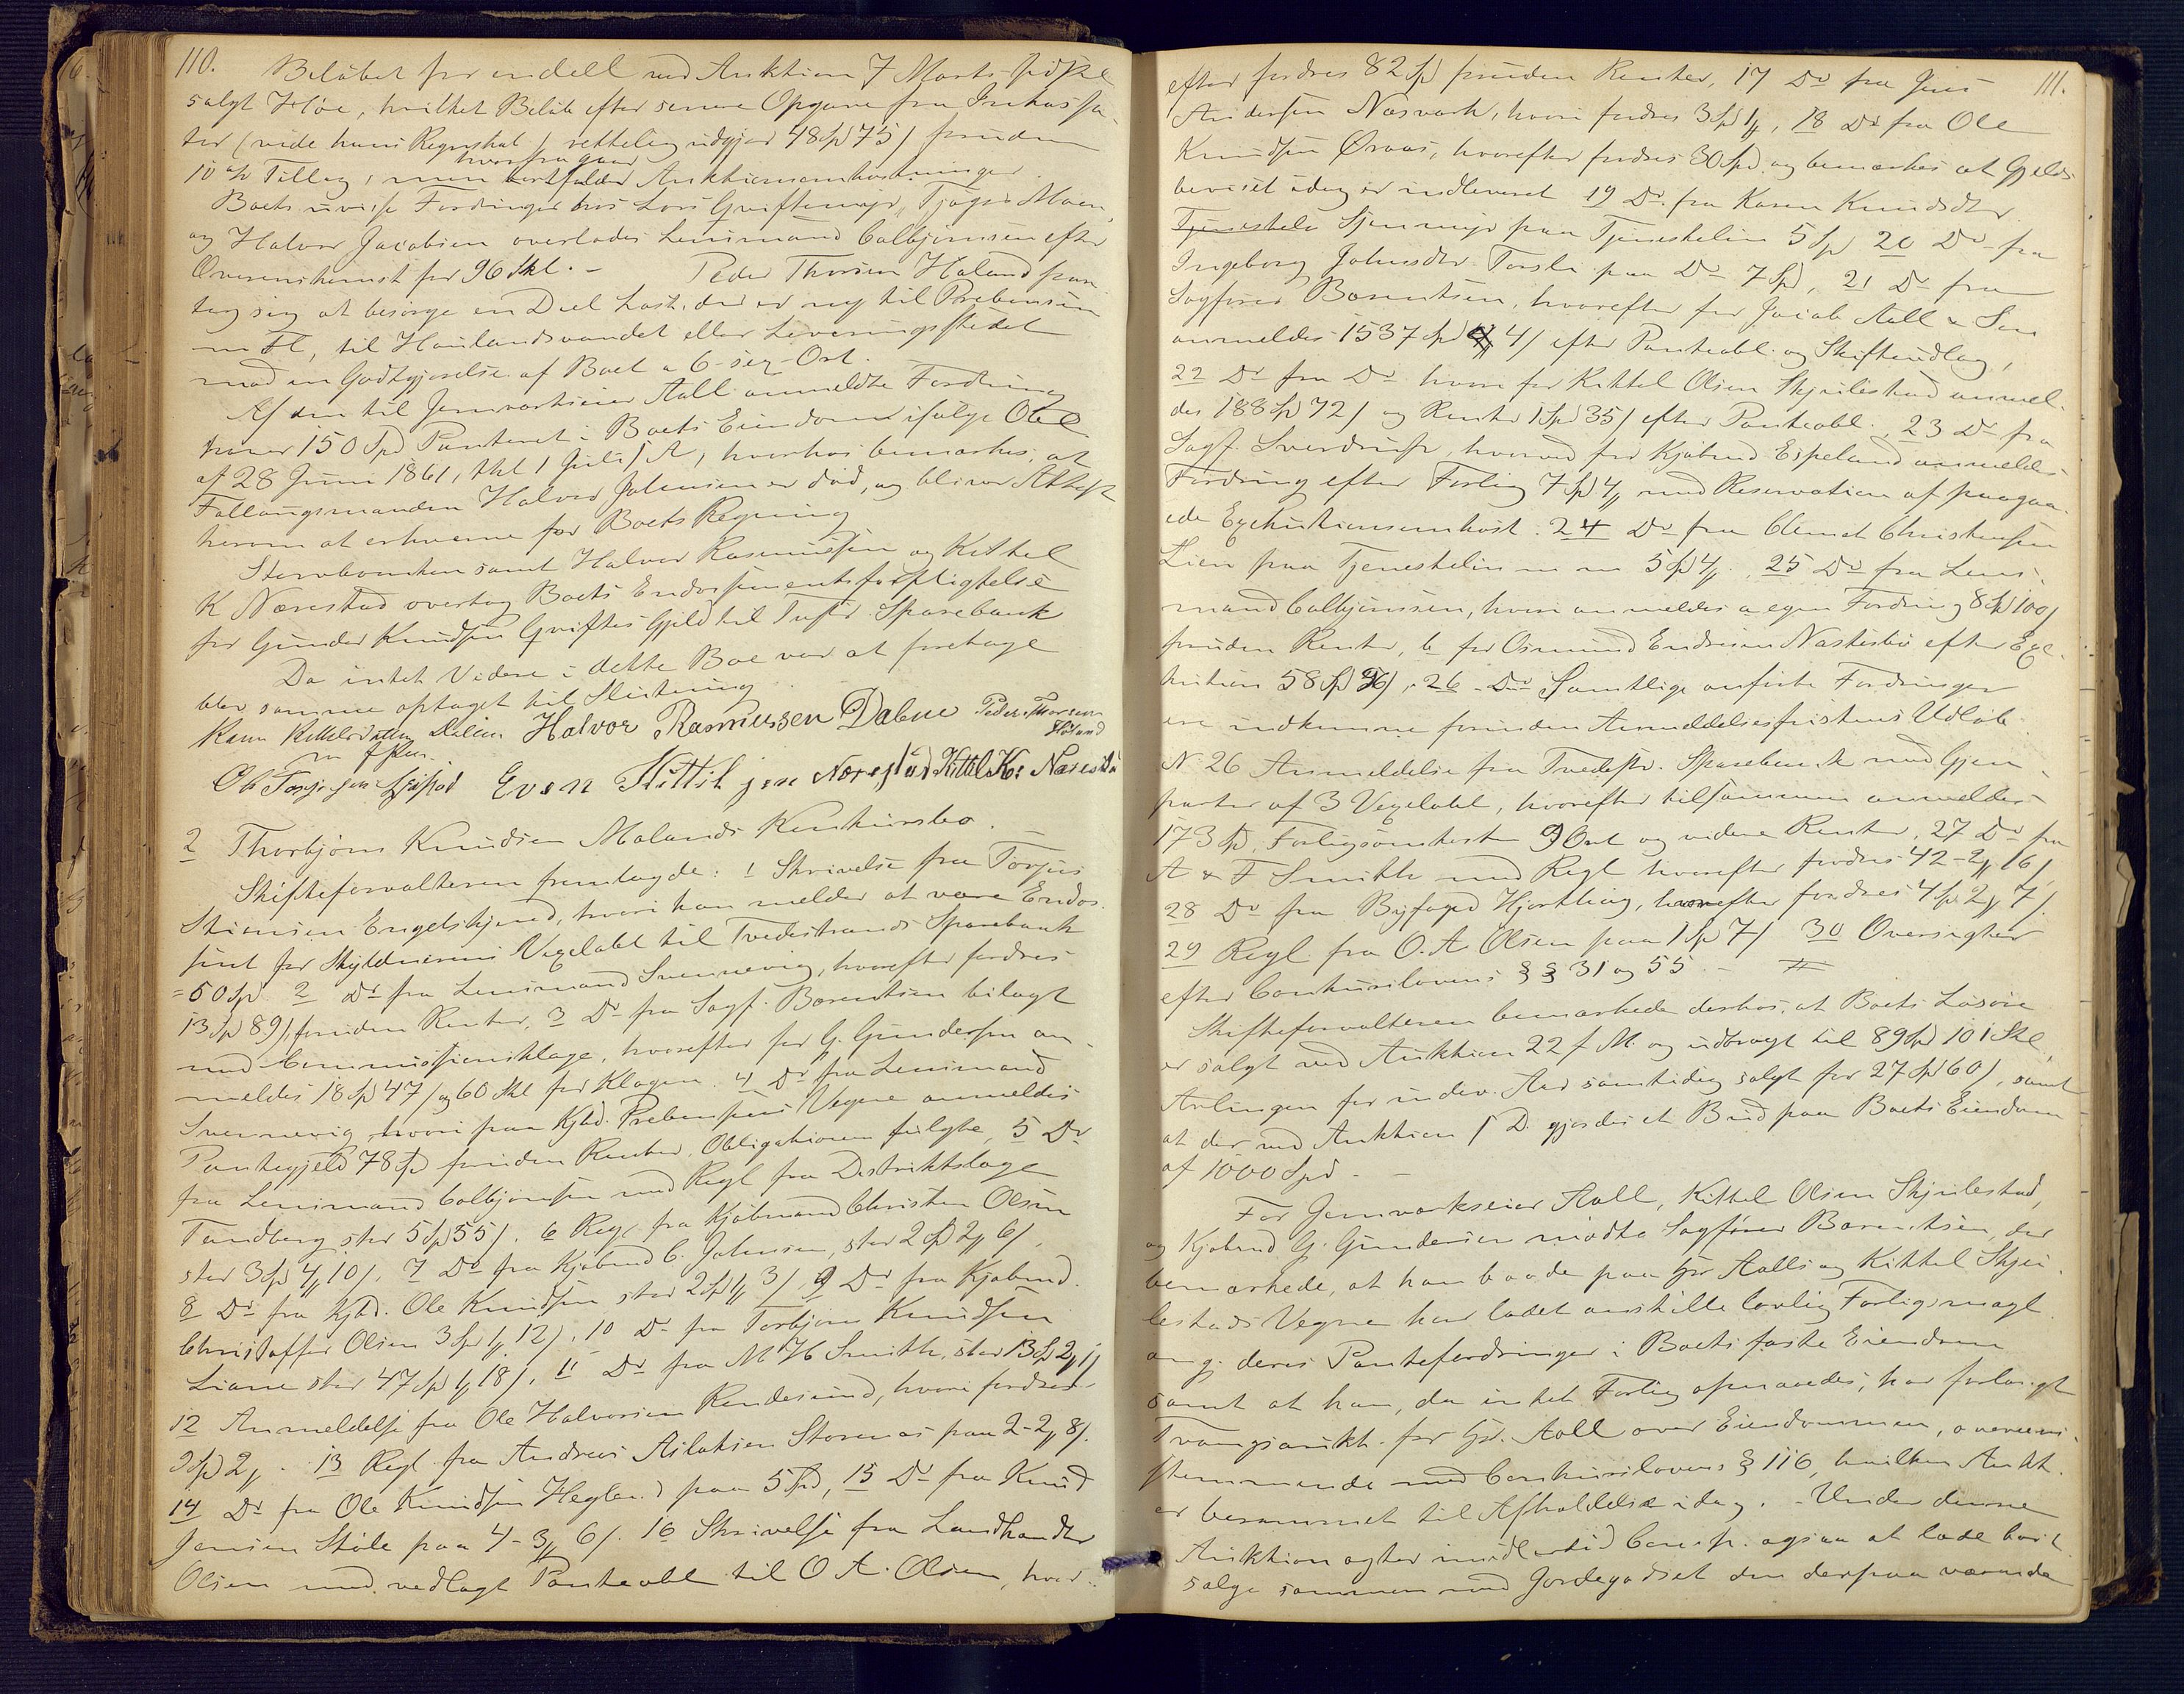 110.
Beløbet for en dell ved Auktion 7 Marts
solgt Høe, hvilket Beløb efter senere Opgave fra Inkassa-
tor (vide hans Regnskab) rettelig udgjør 48 Spd 75 / foruden
10 % Tillæg, men hvorfra gaar Auktionsomkostninger.
Boets uvisse Fordringer hos Lars Grriftemyr, Tjøger Moen,
og Halvor Jacobsen overlodes Lensmand Calbjørnsen efter
Overenskomst for 96 Skl. - Peder Thorsen Håland paa
tog sig at besørge en Deel Last, der er ny til Prebensen
m Fl, til Haulandsvandet eller Leveringsstedet
mod en Godtgjørelse af Boet a 6 - sex - Ort.
Af den til Jernværkseier Aall anmeldte Fordring
haver 150 Spd Panteret i Boets Eiendom ifølge Obl
af 28 Juni 1861, thl 1 Juli s A, hvorhos bemærkes, at
Fallangsmanden Halvor Johnsen er død, og bliver Attest
herom at erhverve for Boets Regning
Stervboenken samt Halvor Rasmussen og Kittel
K Nærestad overtog Boets Endossementsforpligtelse
for Gunder Knudsen Grriftes Gjeld til Tvedestr. Sparebank
Da intet Videre i dette Boe var at foretage
blev samme optaget til Slutning
Karen Kittelsdatter Dalene Halvor Rasmussen Dalene Peder Thorsen
Håland
m f Pen.
Ole Even Kittilsen Nærestad Kittel Ks Nærestad
2 Thorbjørn Knudsen Molands Konkursbo.
Skifteforvalteren fremlagde: 1 Skrivelse fra Torjus
Stiansen Engelskjend, hvori han melder at være Endos-
sent for Skyldnerens Vexelobl til Tvedestrands Sparebank
= 50 Spd 2 Do fra Lensmand Svennevig, hvorefter fordres
13 Spd 89 /, foruden Renter, 3 Do fra Sagf. Børentsen bilagt
med Commissionsklage, hvorefter for G. Gundersen an-
meldes 18 Spd 47 / og 60 Skl for Klagen. 4 Do fra Lensmand
Svennevig hvori paa Kjbd. Prebensens Vegne anmeldes
Pantegjeld 78 Spd foruden Renter. Obligationen fulgte, 5 Do
fra Lensmand Colbjørnsen med Regl fra Distriktslæge
Tandberg stor 5 Spd 55 /. 6 Regl fra Kjøbmand Christen Olsen
stor 3 Spd 4 10 /. 7 Do fra Kjøbmd C. Johnsen, stor 2 Spd 2 6 /.
8 Do fra Kjbd. Ole Knudsen stor 2 Spd 1 3 /, 9 Do fra Kjøbmd.
Christoffer Olsen 3 Spd 1 12 /. 10 Do fra Torbjørn Knudsen
Liane stor 47 Spd 1 18 /. 11 Do fra M H Smith, stor 13 Sp 2 1 /
12 Anmeldelse fra Ole Halvorsen Rendesund, hvori fordres
9 Spd 2. 13 Regl fra Andreas Aslaksen Storenæs paa 2-2, 8 /.
14 Do fra Ole Knudsen Hegland paa 5 Spd, 15 Do fra Knud
Jensen Støle paa 4 - 3 6 /. 16 Skrivelse fra Landhandler
Olsen med vedlagt Panteobl til O A. Olsen, hvor-
111.
efter fordres 82 Spd foruden Renter, 17 Do fra Jens
Andersen Næsværk, hvori fordres 3 Spd 1, 18 Do fra Ole
Knudsen Øraas, hvorefter fordres 30 Spd og bemærkes at Gjelds-
beviset idag er indleveret 19 Do fra Karen Knudsdtr
Tjenesteløn Sjønmyr paa Tjenesteløn 5 Spd 20 Do fra
Ingeborg Johnsdtr Torsli paa Do 7 Spd, 21 Do fra
Sagfører Børentsen, hvorefter for Jacob Aall & Søn
anmeldes 1537 Spd 4 / efter Panteobl. og Skifteudlæg,
22 Do fra Do hvori for Kittel Olsen Skjulestad anmel-
des 188 Spd 72 / og Renter 1 Spd 35 / efter Panteobl. 23 Do fra
Sagf. Sverdrup, hvorved for Kjøbmd Espeland anmeldes
Fordring efter Forlig 7 Spd 4 med Reservation af paagaa-
ede Exekutionsomkost. 24 Do fra Clemet Christensen
Lien paa Tjenesteløn m m 5 Spd 4. 25 Do fra Lens-
mand Colbjørnsen, hvori anmeldes a egen Fordring 8 Spd 100 /
foruden Renter, b for Osmund Endresen Næstesbø efter Exe-
kution 58 Spd 96 /, 26 Do Samtlige anførte Fordringer
ere indkomne forinden Anmeldelsesfristens Udløb.
No 26 Anmeldelse fra Tvedestr. Sparebank med Gjen-
parter af 3 Vexelobl, hvorefter tilsammen anmeldes
173 Spd, Forligsomkoster 9 Ort og videre Renter. 27 Do fra
A & F Smith med Regl hvorefter fordres 42 - 2, 16 /
28 Do fra Byfoged Hjortling, hvorefter fordres 4 Sp. 2, 7 /.
29 Regl fra O. A Olsen paa 1 Sp 7 / 30 Oversigter
efter Conkurslovens §§ 31 og 55. -
Skifteforvalteren bemærkede derhos, at Boets Løsøre
er solgt ved Auktion 22 f. M. og udbragt til 89 Spd 101 Skl,
Avlingen for indev. Aar samtidig solgt for 27 Spd 60 /, samt
at der ved Auktion s D. gjordes et Bud paa Boets Eiendom
af 1000 Spd. -
For Jernværkseier Aall, Kittel Olsen Skjulestad,
og Kjøbmd G. Gundersen mødte Sagfører Børentsen, der
bemærkede, at han baade paa Hr Aalls og Kittel Skju-
lestads Vegne har ladet anstille lovlig Forligsmægl.
ang. deres Pantefordringer i Boets faste Eiendom
samt at han, da intet Forlig opnaaedes, har forlangt
Tvangsaukt. for Hr. Aall over Eiendommen, overens-
stemmende med Conkurslovens § 116, hvilken Aukt.
er berammet til Afholdelse idag. - Under denne
Auktion agter imidlertid Comp. ogsaa at lade bort-
sælge sammen med Jordegodset den derpaa værende